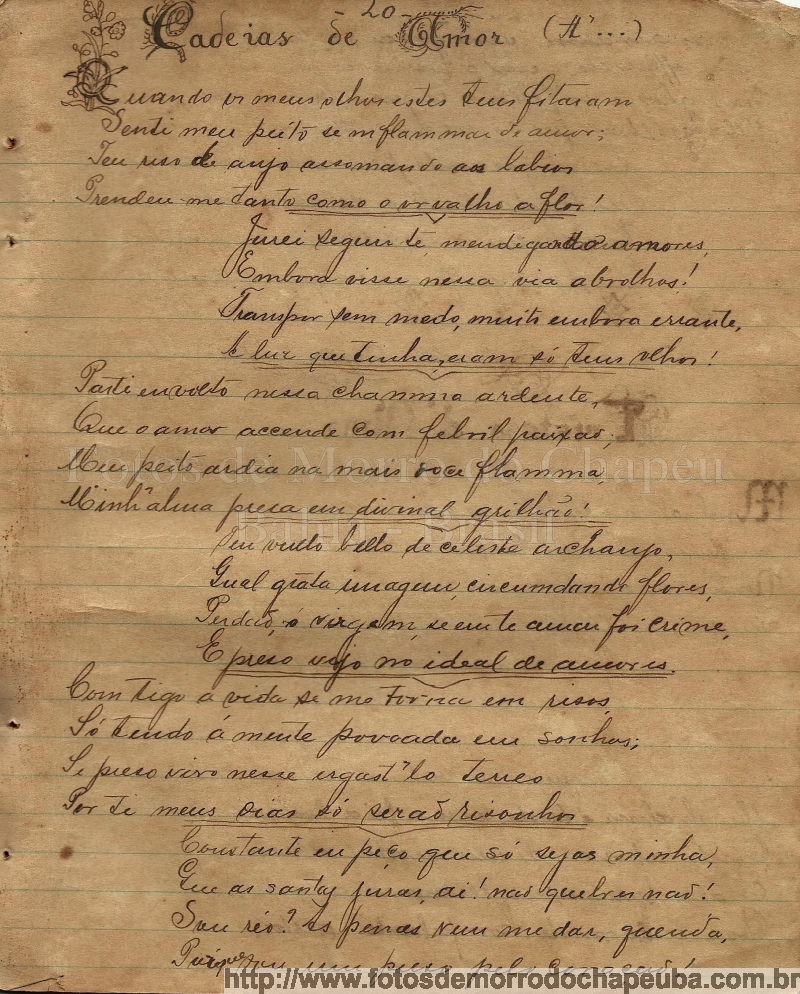 - 20 -
Cadeias de Amor (A' ...)
Quando vi meus olhos estes teus fitaram
Senti meu peito se inflammar de amor;
Teu riso de anjo assomando aos labios
Prendeu-me tanto como o orvalho a flor!
Jurei seguir-te, mendigando amores,
Embora visse nessa via abrolhos!
Transpor sem medo, muito embora errante,
A luz que tinha, eram só teus olhos!
Parti envolto nessa chamma ardente,
Que o amor accende com febril paixão;
Meu peito ardia na mais doce flamma,
Minh'alma presa em divinal grilhão!
Teu vulto bello de celeste archanjo,
Qual grata imagem, circumdando flores,
Perdão, ó virgem, se em te amar foi crime,
E preso vejo no ideal de amores.
Comtigo a vida se me torna em risos,
Só tendo á mente povoada em sonhos;
Se preso vivo nesse ergast'lo terreo
Por ti meus dias só serão risonhos
Constante eu peço que só sejas minha,
Que as santas juras, ai! não quebres não!
Sou réo? As penas vem me dar, querida,
Porque sou um preso pelo coração!
Fotos de Morro do Chapéu
Bahia - Brasil
http://www.fotosdemorrodochapeuba.com.br